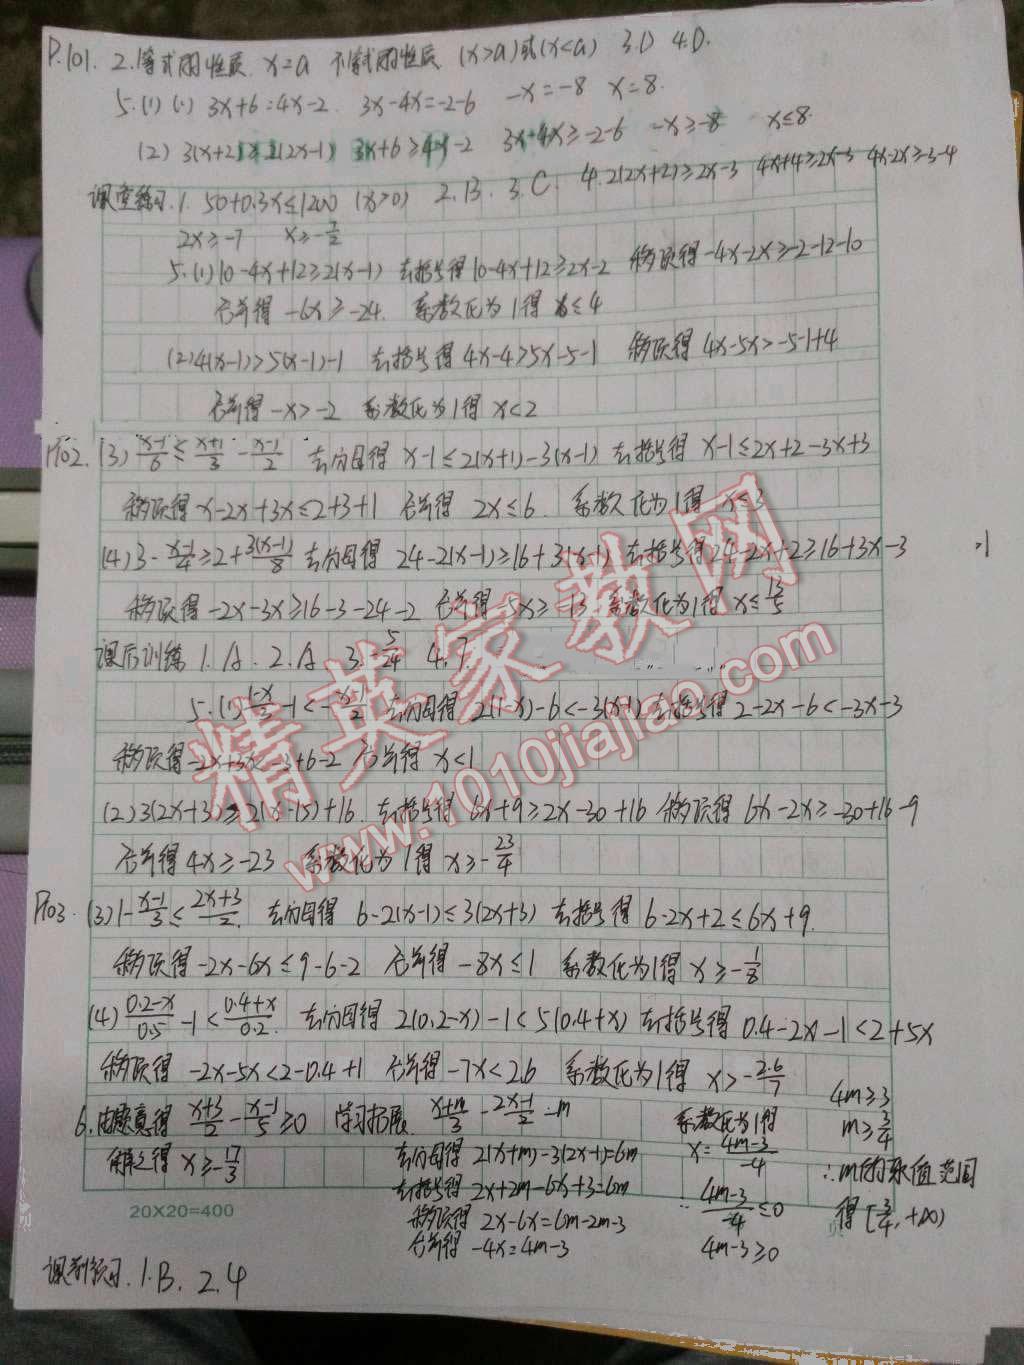 P.101. 2.等式的性质. x=a 不等式的性质 (x>a)或(x<a) 3.D 4.D.
5.(1)(1) 3x+6=4x-2. 3x-4x=-2-6 -x=-8 x=8.
(2) 3(x+2)≥2(2x-1) 3x+6≥4x-2 3x-4x≥-2-6 -x≥-8 x≤8.
课堂练习.1. 50+0.3x≤1200 (x>0) 2.B. 3.C. 4. 2(2x+2)≥2x-3 4x+4≥2x-3 4x-2x≥-3-4
2x≥-7 x≥-7/2
5.(1)10-4x+12≥2(x-1) 去括号得10-4x+12≥2x-2 移项得-4x-2x≥-2-12-10
合并得 -6x≥-24. 系数化为1得 x≤4
(2)4(x-1)>5(x-1)-1 去括号得4x-4>5x-5-1 移项得 4x-5x>-5-1+4
合并得-x>-2 系数化为1得 x<2
P102. (3) (x-1)/6≤(x+1)/3-(x-1)/2 去分母得 x-1≤2(x+1)-3(x-1) 去括号得 x-1≤2x+2-3x+3
移项得x-2x+3x≤2+3+1 合并得 2x≤6. 系数化为1得 x≤3
(4)3-(x-1)/4≥2+3(x-1)/8 去分母得 24-2(x-1)≥16+3(x-1) 去括号得24-2x+2≥16+3x-3
移项得-2x-3x≥16-3-24-2 合并得-5x≥-13 系数化为1得 x≤13/5
课后训练 1.A. 2.A 3. 5/24 4.7.
5.(1)(1-x)/3-1<-(x-1)/2 去分母得 2(1-x)-6<-3(x-1) 去括号得 2-2x-6<-3x-3
移项得-2x+3x<-3+6-2 合并得 x<1
(2)3(2x+3)≥2(x-15)+16. 去括号得 6x+9≥2x-30+16 移项得 6x-2x≥-30+16-9
合并得 4x≥-23 系数化为1得 x≥-23/4
P103. (3)1-(x-1)/3≤(2x+3)/2. 去分母得 6-2(x-1)≤3(2x+3) 去括号得 6-2x+2≤6x+9.
移项得-2x-6x≤9-6-2 合并得 -8x≤1 系数化为1得 x≥-1/8
(4)(0.2-x)/0.5-1<(0.4+x)/0.2. 去分母得 2(0.2-x)-1<5(0.4+x) 去括号得 0.4-2x-1<2+5x
移项得 -2x-5x<2-0.4+1 合并得-7x<2.6 系数化为1得 x>-2.6/7
6.由题意得 (x+3)/2-(x-1)/5≥0
解之得 x≥-17/3
学习拓展 (x+m)/3-(2x-1)/2=m
去分母得 2(x+m)-3(2x-1)=6m
去括号得 2x+2m-6x+3=6m
移项得 2x-6x=6m-2m-3
合并得 -4x=4m-3
系数化为1得
x=(4m-3)/-4
∵ (4m-3)/-4≤0
4m-3≥0
4m≥3
m≥3/4
∴m的取值范围
得[3/4,+∞)
20X20=400
页
课前预习.1.B. 2.4
精英家教网
www.1010jiajiao.com